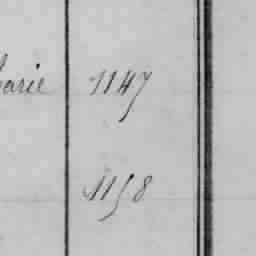 arie 1147
1158